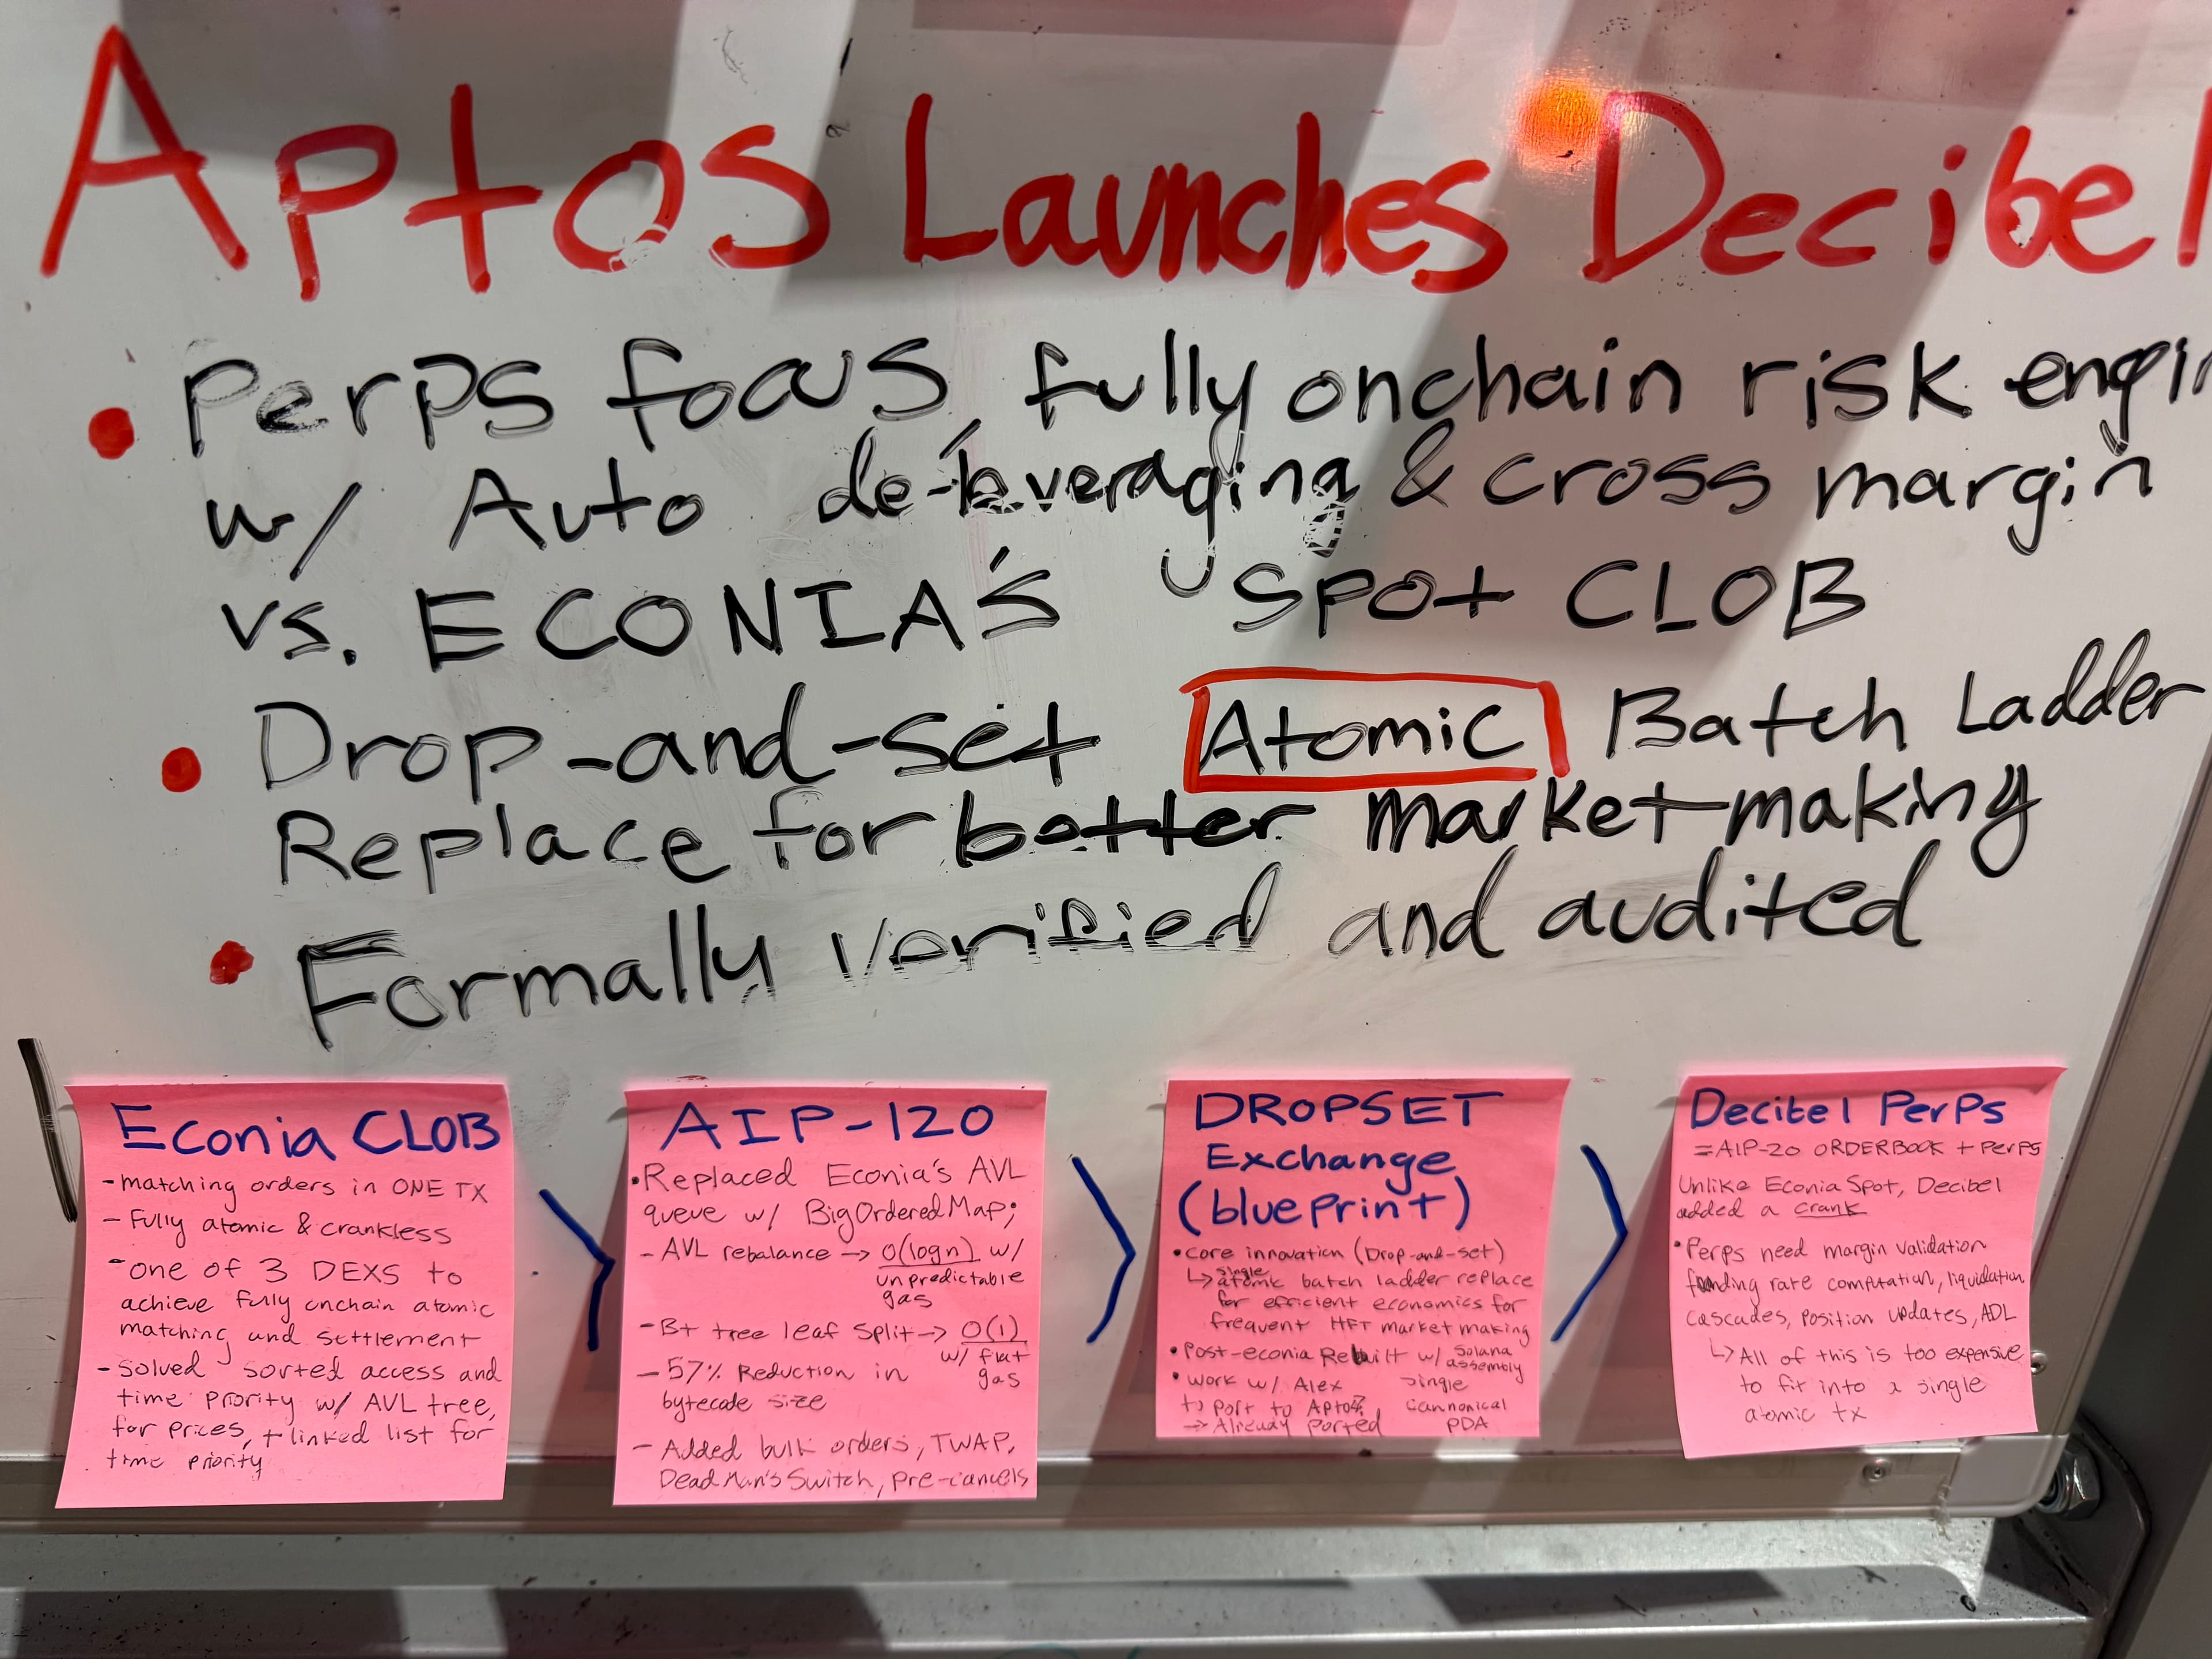 Aptos Launches Decibel
• Perps focus, fully onchain risk engin
w/ Auto de-leveraging & cross margin
vs. ECONIA's spot CLOB
• Drop-and-set Atomic Batch Ladder
Replace for better market-making
• Formally verified and audited
Econia CLOB
- matching orders in ONE TX
- Fully atomic & crankless
- one of 3 DEXS to
achieve fully onchain atomic
matching and settlement
- Solved sorted access and
time priority w/ AVL tree,
for prices, + linked list for
time priority
AIP-120
• Replaced Econia's AVL
queue w/ BigOrderedMap;
- AVL rebalance → O(logn) w/
unpredictable
gas
- B+ tree leaf split → O(1)
w/ flat
gas
- 57% Reduction in
bytecode size
- Added bulk orders, TWAP,
Dead Man's Switch, pre-cancels
DROPSET
Exchange
(blueprint)
• core innovation (Drop-and-set)
↳ single atomic batch ladder replace
for efficient economics for
frequent HFT market making
• Post-econia Rebuilt w/ Solana
assembly
• work w/ Alex
to port to Aptos
→ Already ported
single
Cannonical
PDA
Decibel Perps
= AIP-20 ORDERBOOK + PERPS
Unlike Econia Spot, Decibel
added a crank
• Perps need margin validation
funding rate computation, liquidation
cascades, position updates, ADL
↳ All of this is too expensive
to fit into a single
atomic tx